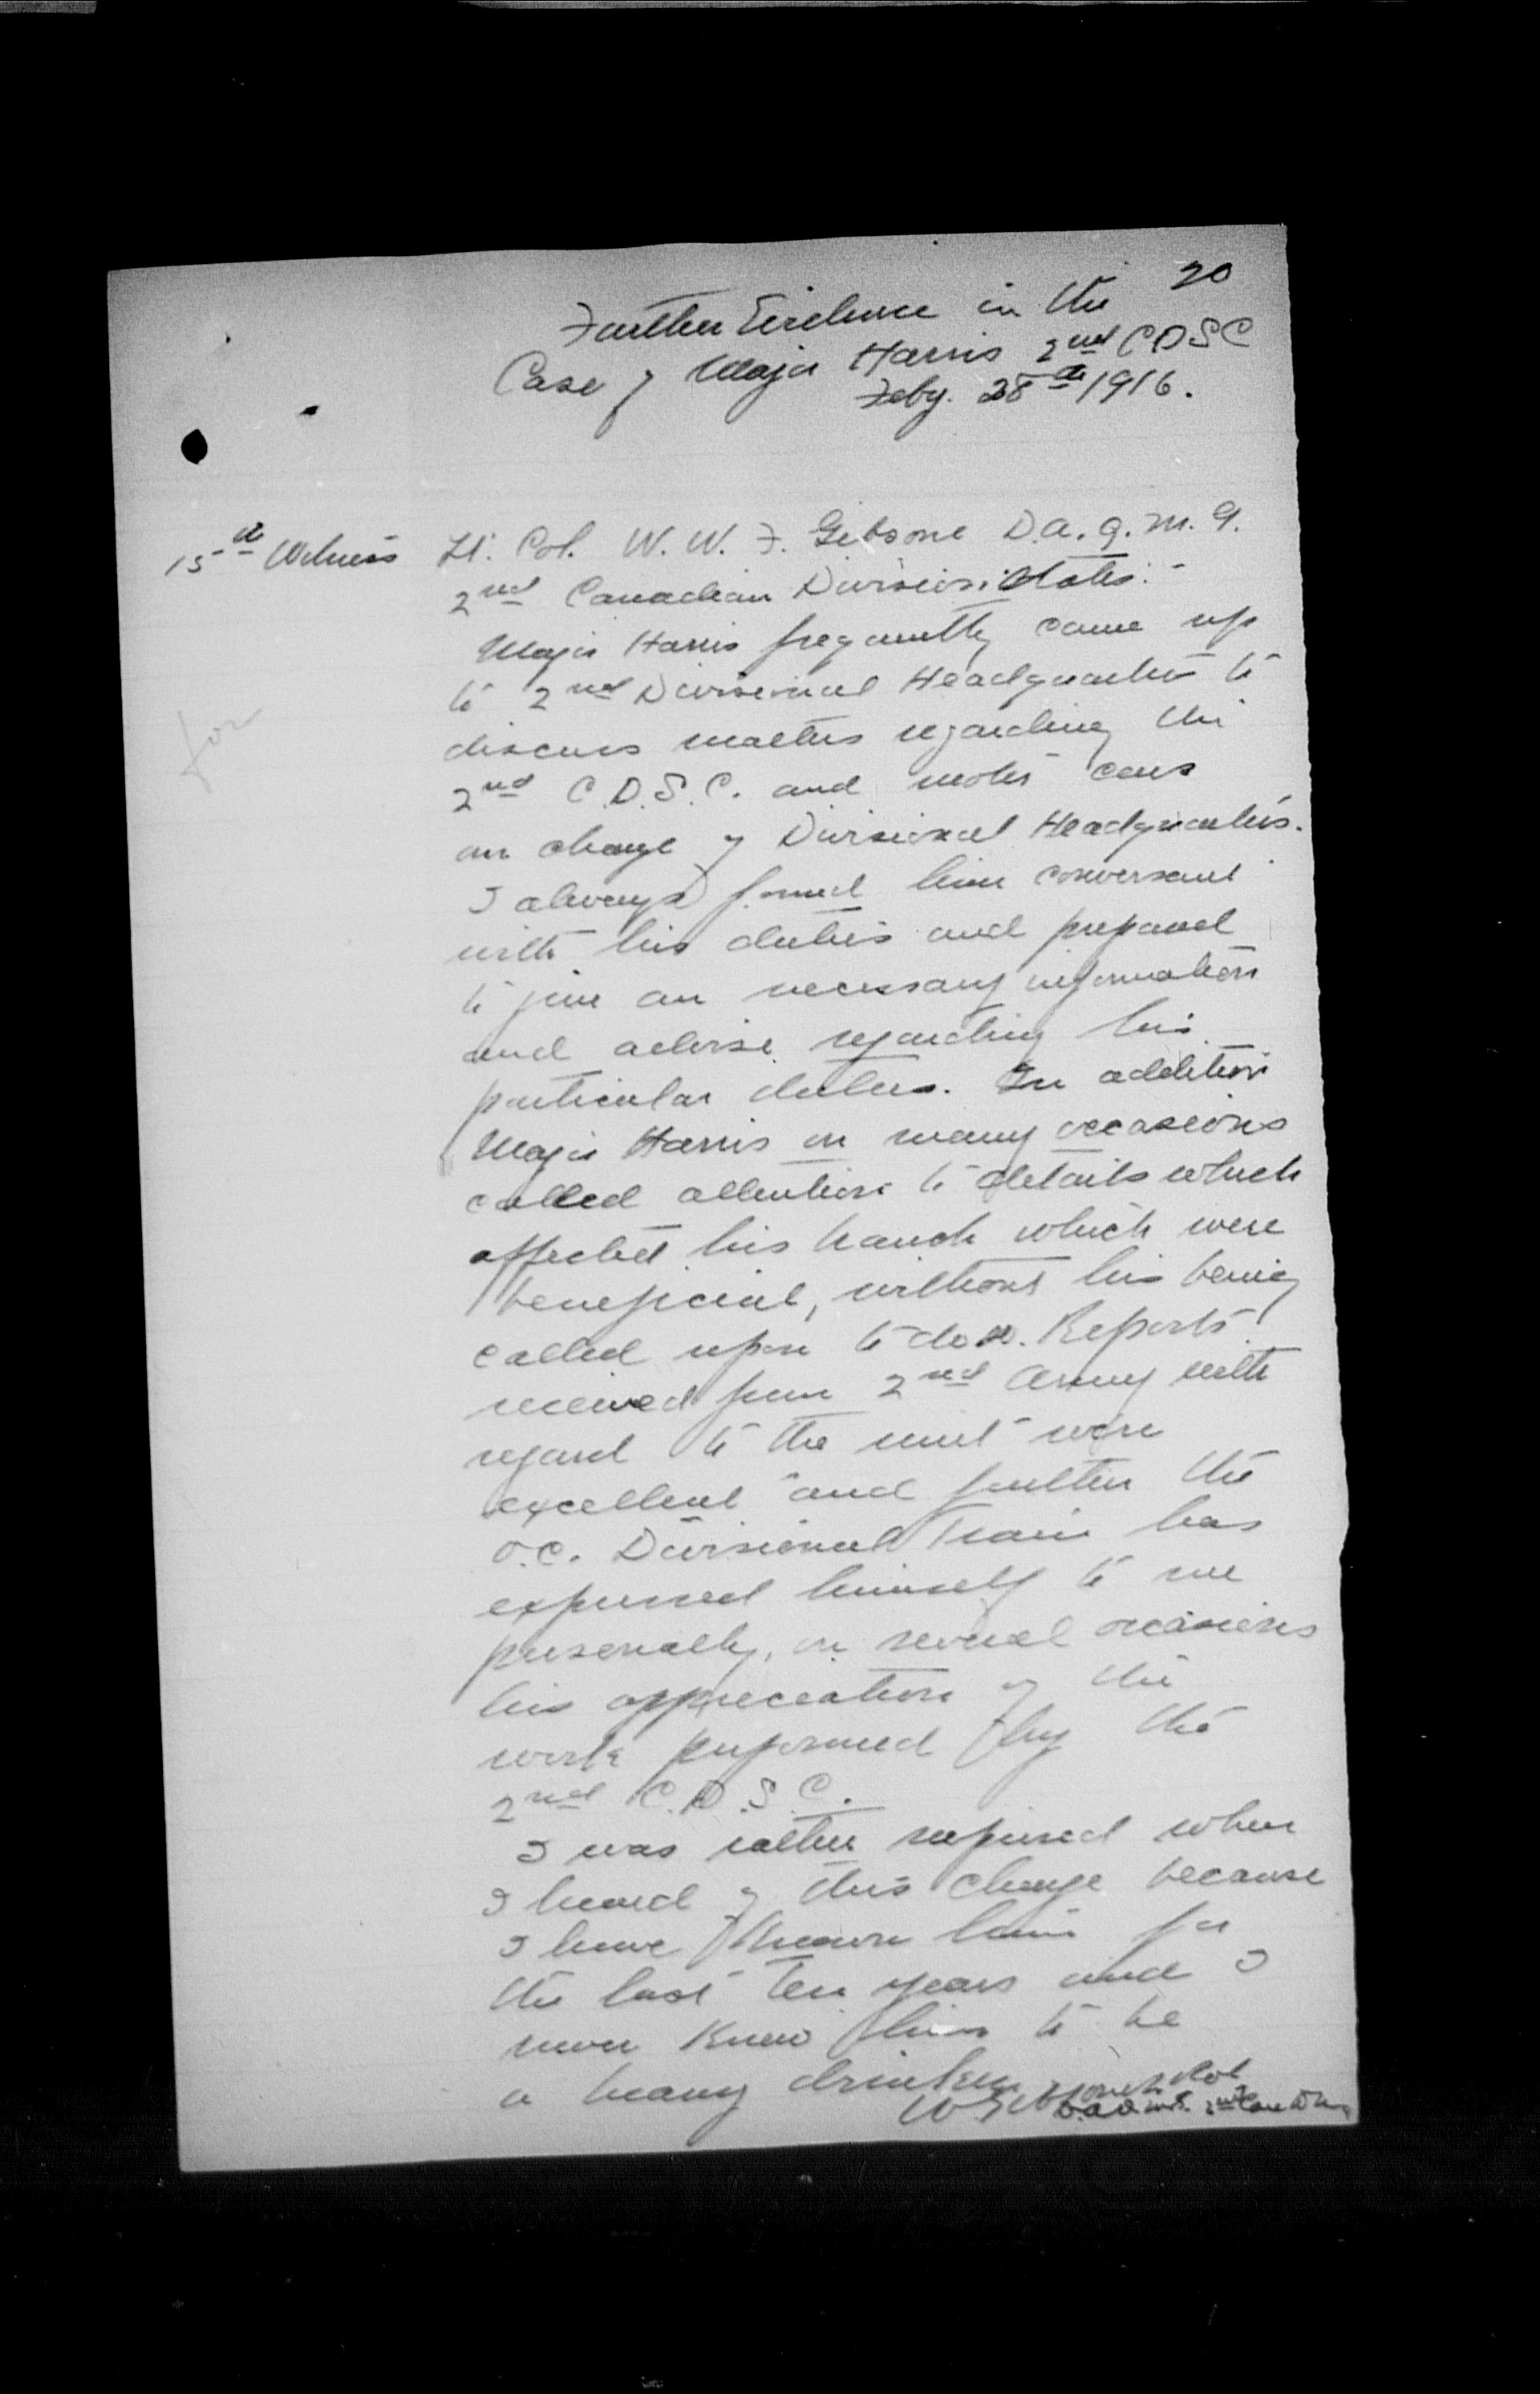 20
Further Evidence in the
Case of Major Harris 2nd CDSC
Feby. 28th 1916.
15th Witness Lt. Col. W. W. F. Gibsone D.A.Q.M.G.
2nd Canadian Division states:-
Major Harris frequently came up
to 2nd Divisional Headquarters to
discuss matters regarding the
for
2nd C.D.S.C. and motor cars
on charge of Divisional Headquarters.
I always found him conversant
with his duties and prepared
to give an necessary information
and advise regarding his
particular duties. In addition
Major Harris on many occasions
called attention to details which
affected his branch which were
beneficial, without his being
called upon to do so. Reports
received from 2nd Army with
regard to the unit were
excellent and further the
O.C. Divisional Train has
expressed himself to me
personally, on several occasions
his appreciation of the
work performed by the
2nd C.D.S.C.
I was rather surprised when
I heard of this charge because
I have known him for
the last ten years and I
never knew him to be
a heavy drinker.
W Gibsone Lt Col
2nd Can Div